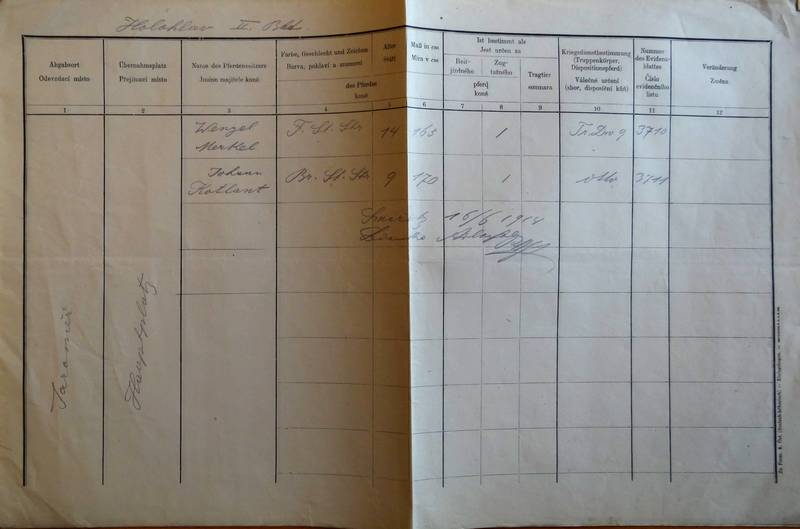 Holohlav II. Bhd
Abgabsort
Odevzdací místo
Übernahmsplatz
Přejímací místo
Name des Pferdebesitzers
Jméno majitele koně
Farbe, Geschlecht und Zeichen
Barva, pohlaví a znamení
Alter
Stáří
des Pferdes
koně
Maß in cm
Míra v cm
Ist bestimmt als
Jest určen za
Reit-
jízdného
Zug-
tažného
pferd
koně
Tragtier
soumara
Kriegsdienstbestimmung
(Truppenkörper,
Dispositionspferd)
Válečné určení
(sbor, disposiční kůň)
Nummer
des Evidenz-
blattes
Číslo
evidenčního
listu
Veränderung
Změna
1 2 3 4 5 6 7 8 9 10 11 12
Wenzel
Merkel
F. St. Str. 14 165 1 9 3710
Johann
Kotlant
Br. St. Str. 9 170 1 otto 3711
16/6 1914
Jaroměř
Hauptplatz